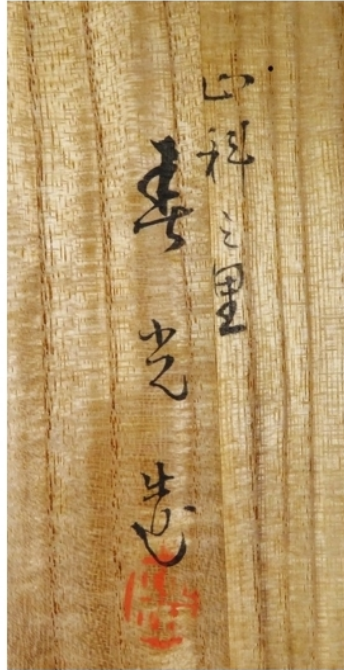 山科之里
春光造